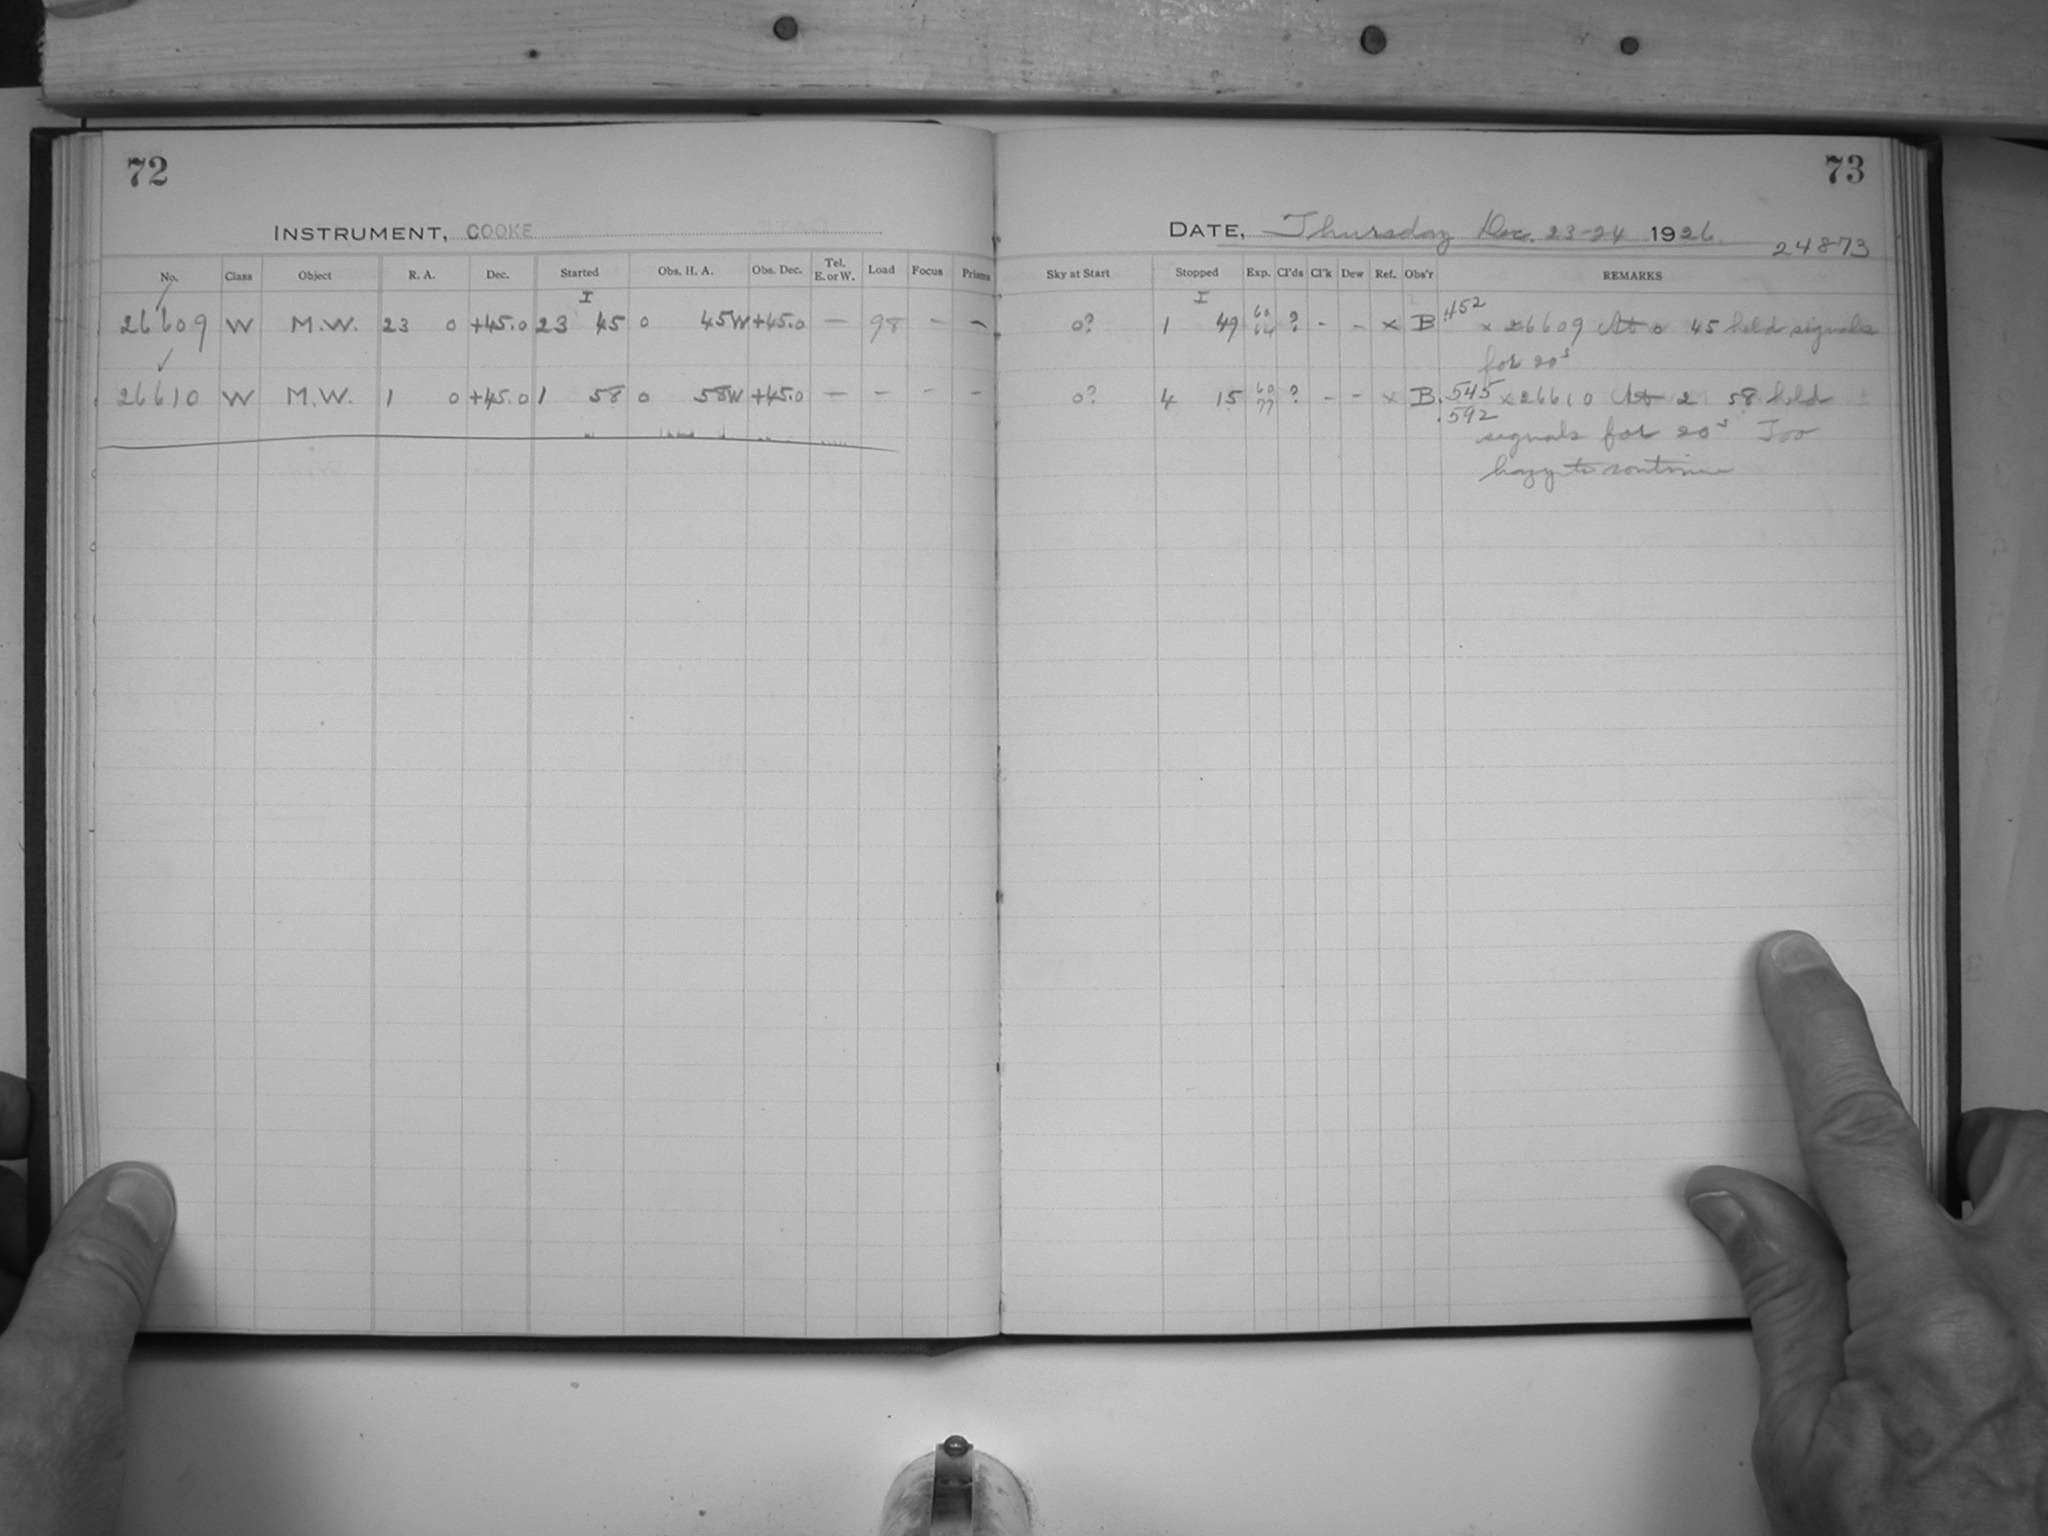 72
INSTRUMENT, COOKE
No. Class Object R. A. Dec. Started Obs. H. A. Obs. Dec. Tel. E. or W. Load Focus Prisms
I
26609 W M.W. 23 0 +45.0 23 45 0 45W +45.0 — 98 – –
✓
26610 W M.W. 1 0 +45.0 1 58 0 58W +45.0 — – – –
73
DATE, Thursday Dec. 23-24 1926.
24873
Sky at Start Stopped Exp. Cl'ds Cl'k Dew Ref. Obs'r REMARKS
I
0? 1 49 60 64 ? - - x B .452 x 26609 At 0 45 held signals
for 20s
0? 4 15 60 77 ? - - x B .545 x 26610 At 2 58 held
.592
signals for 20s Too
hazy to continue